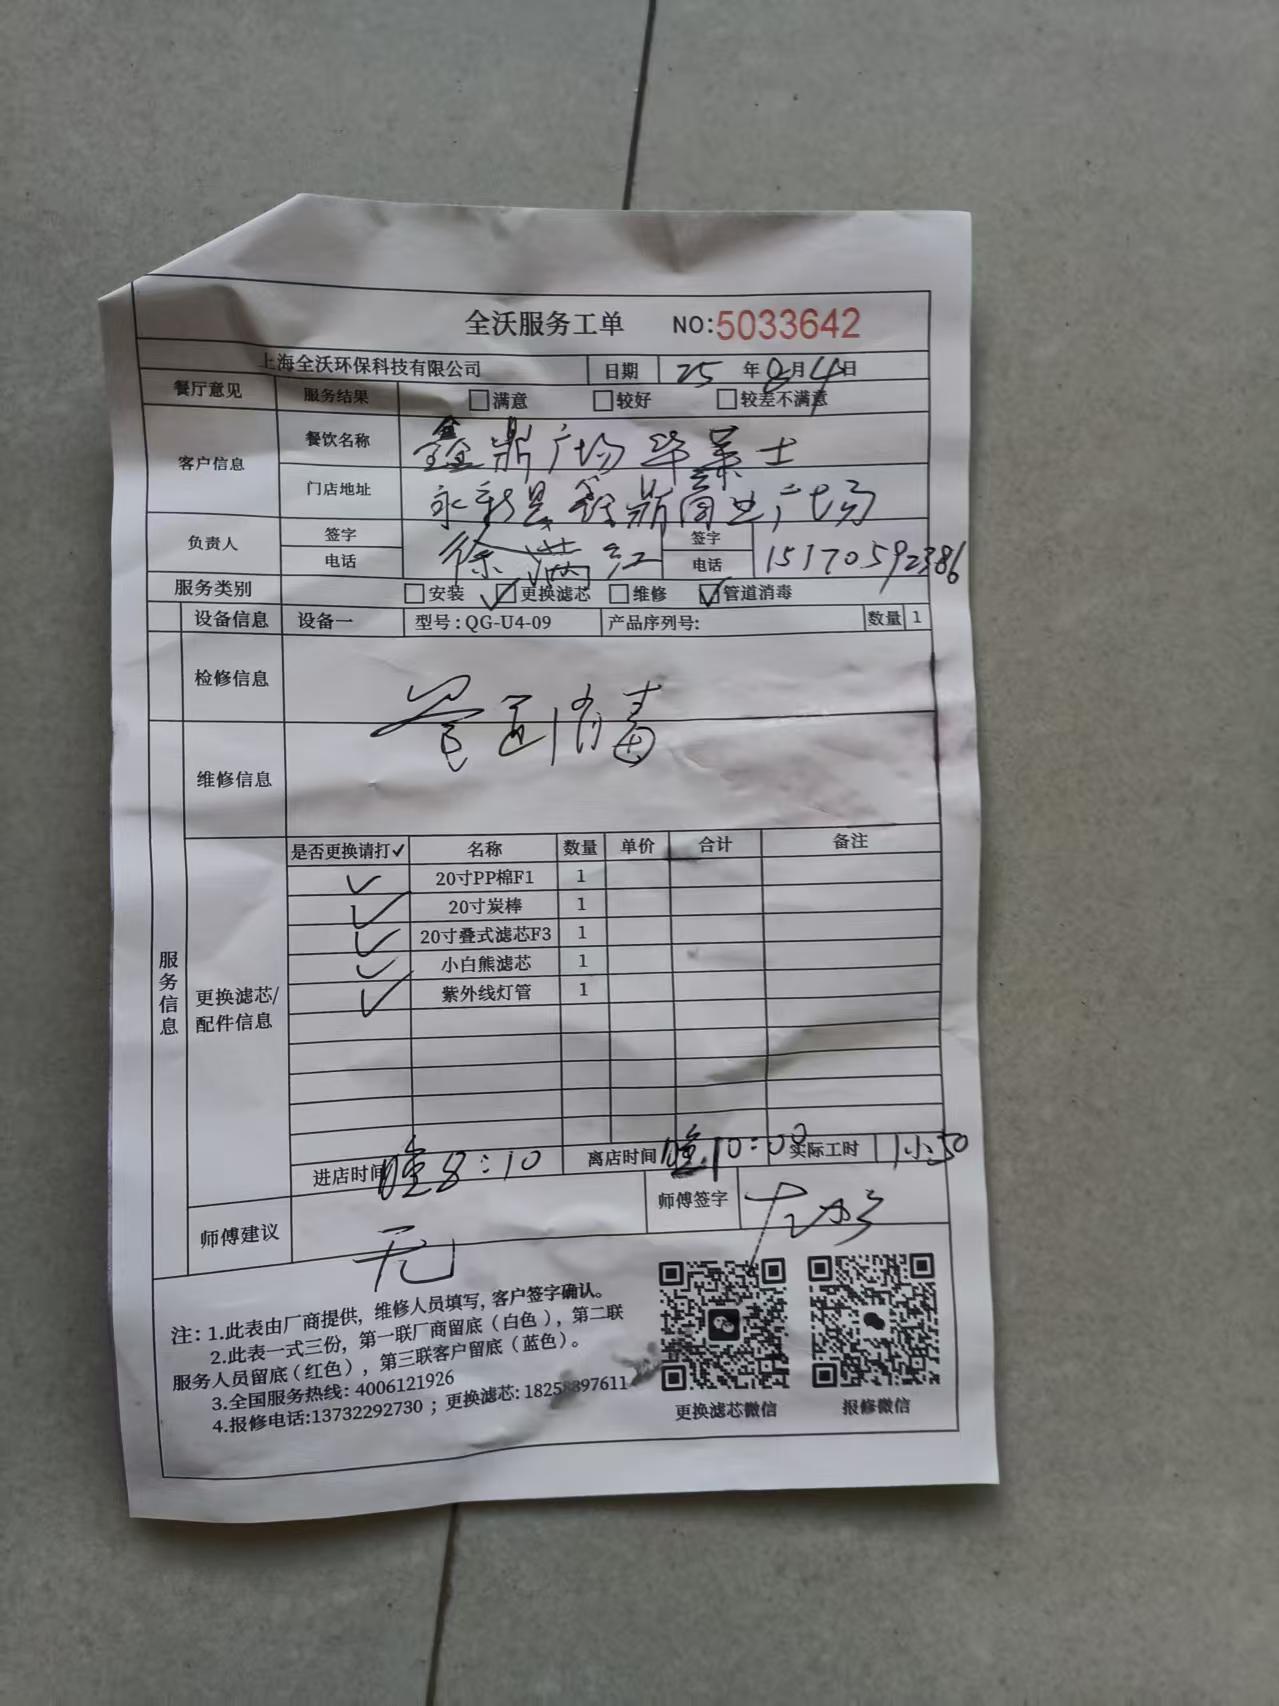 全沃服务工单 NO:5033642
上海全沃环保科技有限公司 日期 25 年 8 月 4 日
餐厅意见 服务结果 满意 较好 较差不满意
客户信息 餐饮名称 鑫鼎广场华莱士
门店地址 永新县鑫鼎商业广场
负责人 签字 徐满红 签字
电话 电话 15170592386
服务类别 安装 更换滤芯 维修 管道消毒
设备信息 设备一 型号:QG-U4-09 产品序列号: 数量 1
检修信息
管道消毒
维修信息
服务信息
更换滤芯/配件信息
是否更换请打✓ 名称 数量 单价 合计 备注
✓ 20寸PP棉F1 1
✓ 20寸炭棒 1
✓ 20寸叠式滤芯F3 1
✓ 小白熊滤芯 1
✓ 紫外线灯管 1
进店时间 晚8:10 离店时间 晚10:00 实际工时 1小50
师傅建议 无 师傅签字
注:1.此表由厂商提供,维修人员填写,客户签字确认。
2.此表一式三份,第一联厂商留底(白色),第二联
服务人员留底(红色),第三联客户留底(蓝色)。
3.全国服务热线:4006121926
4.报修电话:13732292730;更换滤芯:18258897611
更换滤芯微信 报修微信